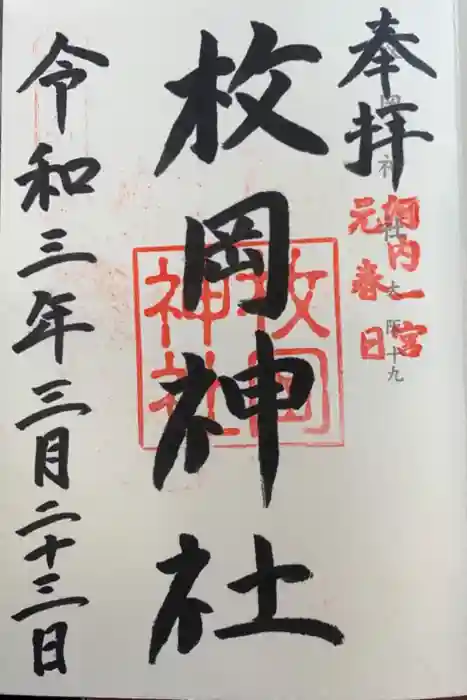 奉拝
河内一宮
元春日
枚岡神社
枚岡神社
令和三年三月二十三日